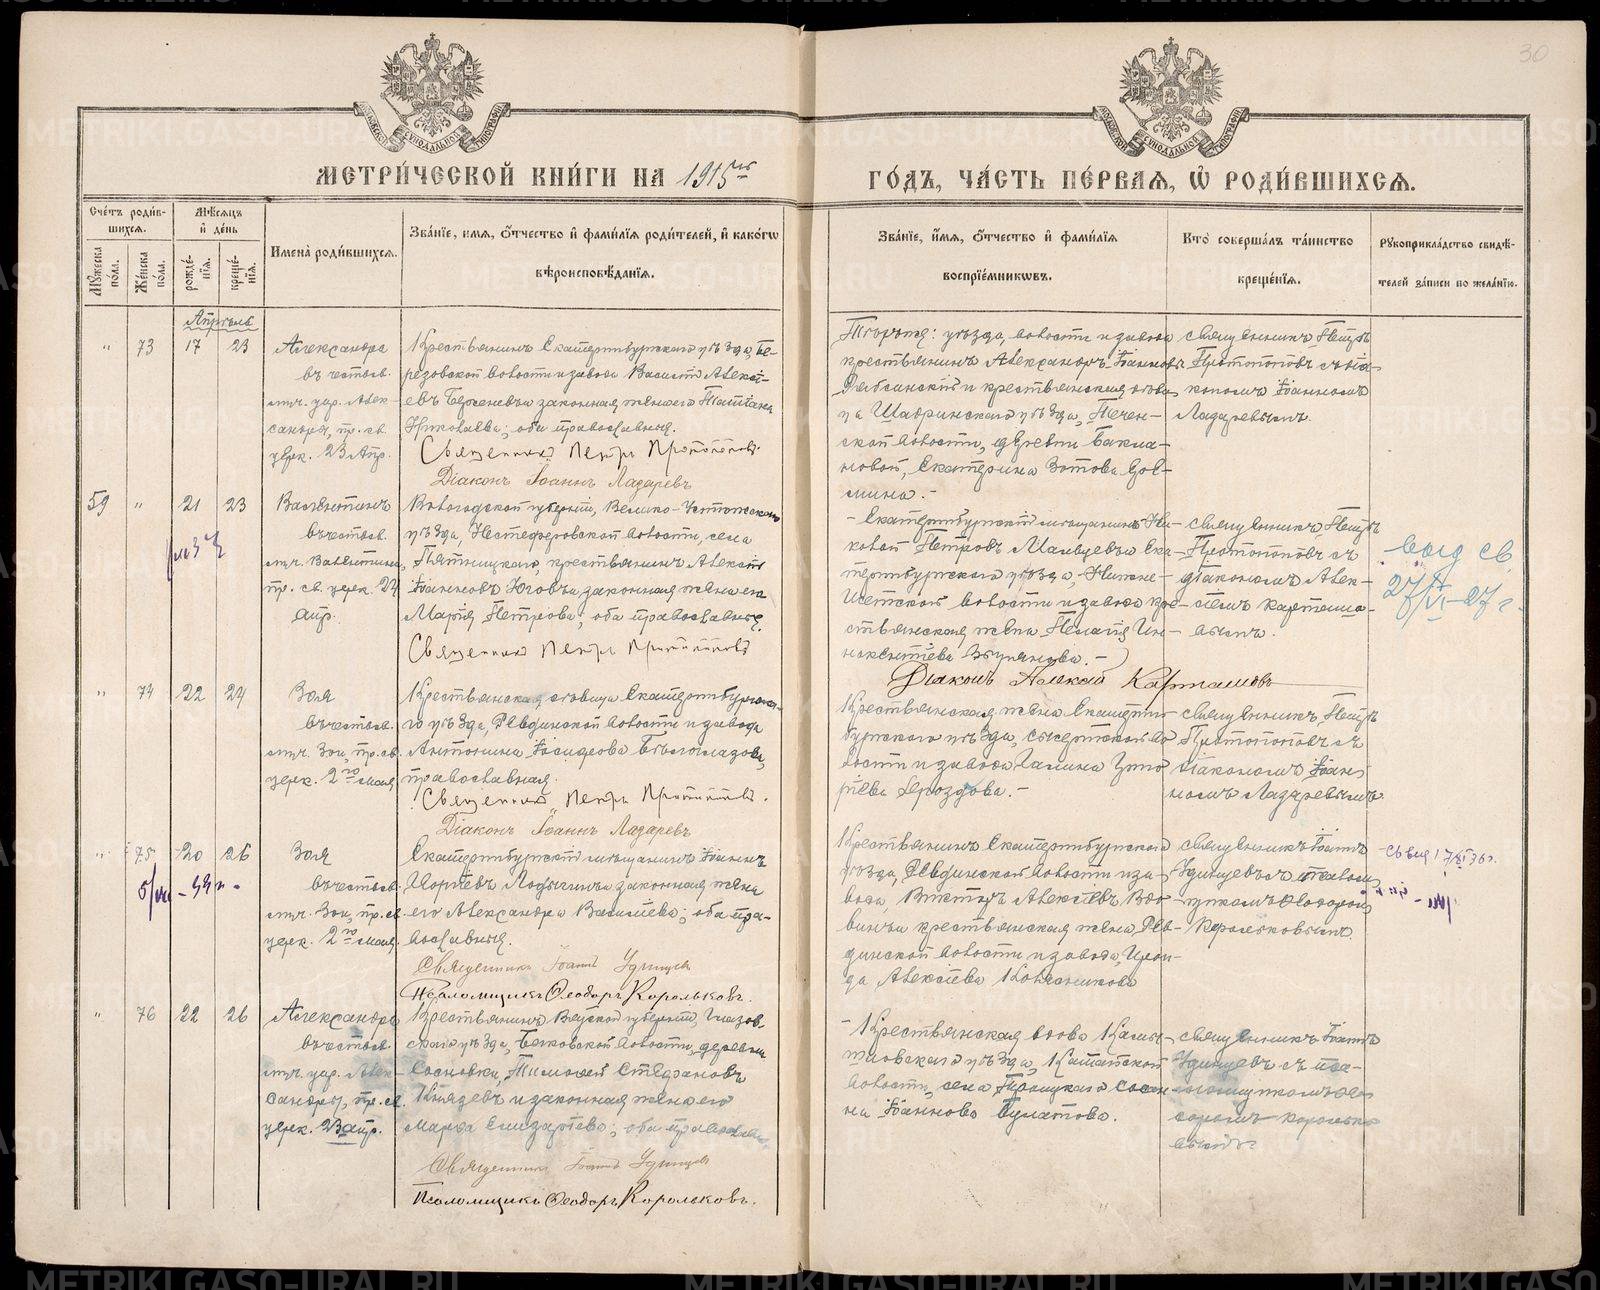 30
МЕТРИ́ЧЕСКОЙ КНИ́ГИ НА 1915ый
ГО́ДЪ, ЧА́СТЬ ПЕ́РВАЯ, Ѡ РОДИ́ВШИХСЯ.
Сче́тъ роди́в-
шихся.
Мꙋ́жеска по́ла.
Же́нска по́ла.
Мѣ́сяцъ и де́нь
рожде́нїя.
креще́нїя.
Имена̀ роди́вшихся.
Зва́нїе, и́мя, ѻ́тчество и фами́лїя роди́телей, и како́гѡ
вѣроисповѣ́данїя.
Зва́нїе, и́мя, ѻ́тчество и фами́лїя
воспрїе́мникѡвъ.
Кто̀ соверша́лъ та́инство
креще́нїя.
Рꙋкоприкла́дство свидѣ́-
телей за́писи по жела́нїю.
Апрѣль
" 73 17 23
Александра
въ честь св.
муч. цар. Алек-
сандры, пр. св.
церк. 23 Апр.
Крестьянинъ Екатеринбургскаго уѣзда, Бе-
резовской волости и завода Василій Алексѣ-
евъ и законная жена его
Николаева; оба православные.
Священникъ Петръ Протопоповъ.
Діаконъ Іоаннъ Лазаревъ
уѣзда, волости и завода
крестьянинъ Александръ Іоанновъ
и крестьянская дѣви-
ца Шадринскаго уѣзда,
ской волости, деревни Бакла-
новой, Екатерина Зотова
мина.-
священникъ Петръ
Протопоповъ съ діа-
кономъ Іоанномъ
Лазаревымъ.
59 " 21 23
Валентинъ
въ честь св.
муч. Валентина,
пр. св. церк. 24
апр.
Вологодской губерніи, Велико-Устюжскаго
уѣзда, Нестеферовской волости, села
Пятницкаго, крестьянинъ Алексѣй
Іоанновъ Юговъ и законная жена его
Марія Петрова; оба православные.
Священникъ Петръ Протопоповъ
- Екатеринбургскій мѣщанинъ Ни-
колай Петровъ Мальцевъ и Ека-
теринбургскаго уѣзда, Нижне-
Исетской волости и завода кре-
стьянская жена Пелагія Ин-
нокентіева
Діаконъ Алексій Карташовъ
священникъ Петръ
Протопоповъ съ
діакономъ Алек-
сѣемъ Карташо-
вымъ.
выд св
27/VI-27 г.
" 74 22 24
Зоя
въ честь св.
муч. Зои, пр. св.
церк. 2го мая,
Крестьянская дѣвица Екатеринбургска-
го уѣзда, Ревдинской волости и завода
Антонина Бѣлоглазова,
православная.
Священникъ Петръ Протопоповъ.
Діаконъ Іоаннъ Лазаревъ
Крестьянская жена Екатерин-
бургскаго уѣзда, Сысертской во-
лости и завода Галина Григо-
ріева Дроздова.-
священникъ Петръ
Протопоповъ съ
діакономъ Іоан-
номъ Лазаревымъ.
" 75 20 26
Зоя
въ честь св.
муч. Зои, пр. св.
церк. 2го мая,
Екатеринбургскій мѣщанинъ Іоаннъ
и законная жена
его Александра Василіева; оба пра-
вославные.
Священникъ Іоаннъ Удинцевъ
Псаломщикъ Ѳеодоръ Корольковъ.
Крестьянинъ Екатеринбургскаго
уѣзда, Ревдинской волости и за-
вода, Викторъ Алексѣевъ
и крестьянская жена, Рев-
динской волости и завода,
Алексѣева
священникъ Іоаннъ
Удинцевъ съ псалом-
щикомъ Ѳеодоромъ
Корольковымъ.
" 76 22 26
Александра
въ честь св.
муч. цар. Алек-
сандры, пр. св.
церк. 23 апр.
Крестьянинъ Вятской губерніи, Глазов-
скаго уѣзда, волости, деревни
Сосновки, Тимофей Стефановъ
Князевъ и законная жена его
Марѳа Елизаріева; оба православные.
Священникъ Іоаннъ Удинцевъ
Псаломщикъ Ѳеодоръ Корольковъ.
- Крестьянская вдова Камы-
шловскаго уѣзда,
волости, села Троицкаго
на Іоаннова Булатова.
священникъ Іоаннъ
Удинцевъ съ пса-
ломщикомъ Ѳео-
доромъ Королько-
вымъ.